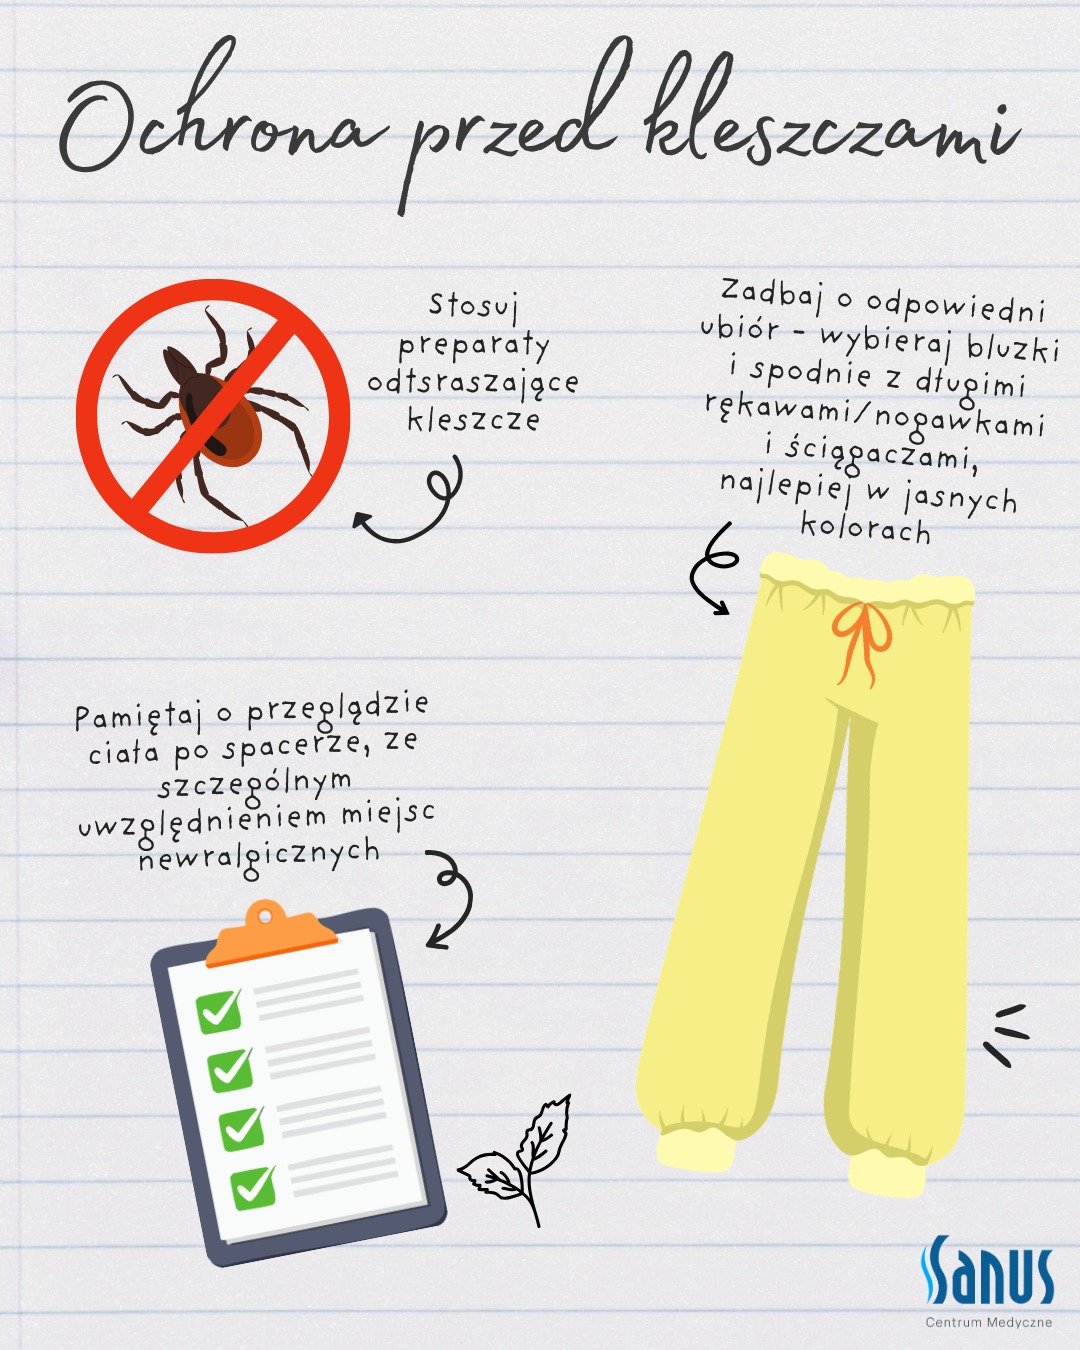 Ochrona przed kleszczami
Stosuj
preparaty
odtsraszające
kleszcze
Zadbaj o odpowiedni
ubiór - wybieraj bluzki
i spodnie z długimi
rękawami/nogawkami
i ściągaczami,
najlepiej w jasnych
kolorach
Pamiętaj o przeglądzie
ciała po spacerze, ze
szczególnym
uwzględnieniem miejsc
newralgicznych
Sanus
Centrum Medyczne